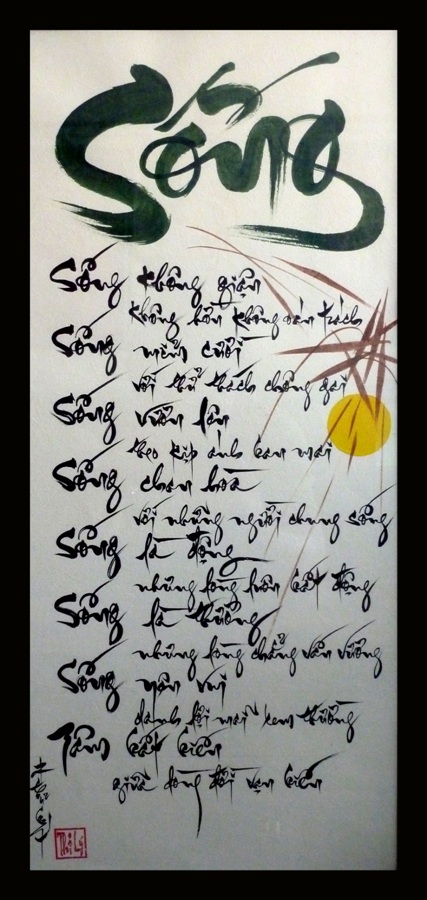 Sống
Sống không giận
không hờn không oán trách
Sống mỉm cười
với thử thách chông gai
Sống vươn lên
theo kịp ánh ban mai
Sống chan hòa
với những người chung sống
Sống là động
nhưng lòng luôn bất động
Sống là thương
nhưng lòng chẳng vấn vương
Sống yên vui
danh lợi mãi xem thường
Tâm bất biến
giữa dòng đời vạn biến